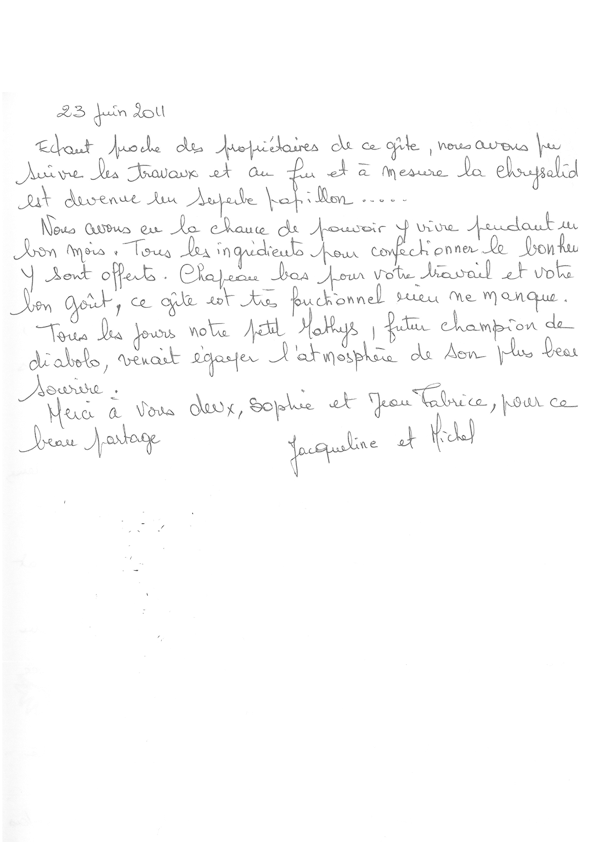 23 Juin 2011
Etant proche des propriétaires de ce gîte, nous avons pu
suivre les travaux et au fur et à mesure la chrysalid
est devenue un superbe papillon.....
Nous avons eu la chance de pouvoir y vivre pendant un
bon mois. Tous les ingrédients pour confectionner le bonheu
y sont offerts. Chapeau bas pour votre travail et votre
bon goût, ce gîte est très fonctionnel rien ne manque.
Tous les jours notre petit Mathys, futur champion de
diabolo, venait égayer l'atmosphère de son plus beau
sourire.
Merci à vous deux, Sophie et Jean Fabrice, pour ce
beau partage
Jacqueline et Michel